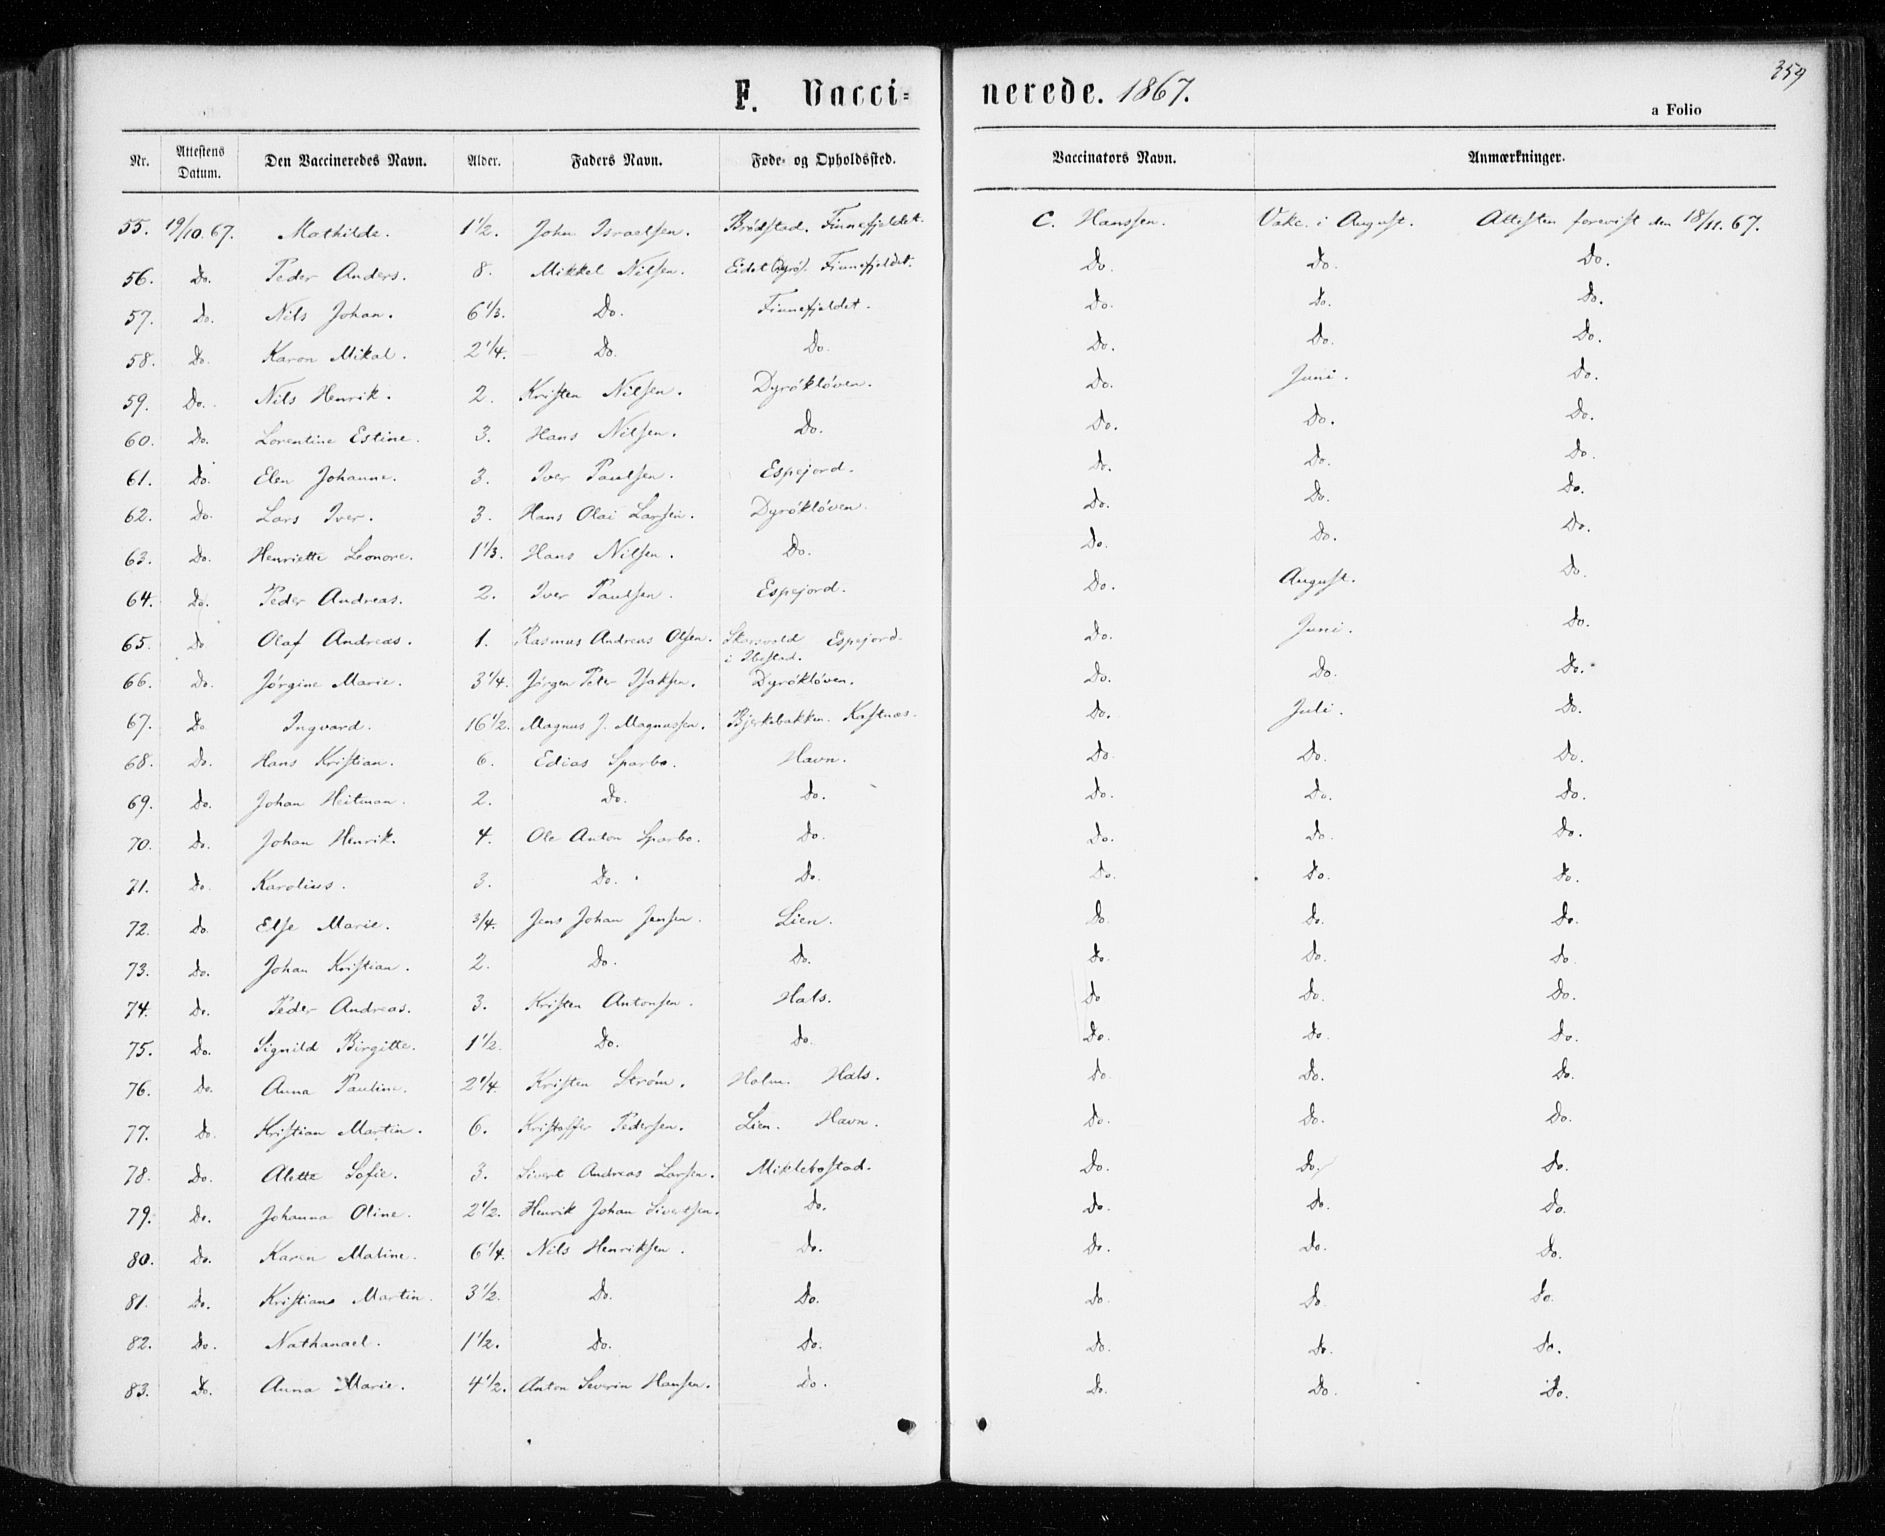 359
F. Vaccinerede. 1867.
a Folio
Nr. Attestens Datum. Den Vaccineredes Navn. Alder. Faders Navn. Føde- og Opholdssted. Vaccinators Navn. Anmærkninger.
55. 19/10.67. Mathilde. 1 1/2. John Israelsen. Brødstad. Finnefjeldet. C. Hanssen. Vakc. i August. Attesten forevist den 18/11.67.
56. Do. Peder Anders. 8. Mikkel Nilsen. Eidet Dyrø. Finnefjeldet. Do. Do. Do.
57. Do. Nils Johan. 6 1/3. Do. Finnefjeldet. Do. Do. Do.
58. Do. Karon Mikal. 2 1/4. Do. Do. Do. Do. Do.
59. Do. Nils Henrik. 2. Kristen Nilsen. Dyrøkløven. Do. Juni. Do.
60. Do. Lorentine Estine. 3. Hans Nilsen. Do. Do. Do. Do.
61. Do. Elen Johanne. 3. Iver Paulsen. Espejord. Do. Do. Do.
62. Do. Lars Iver. 3. Hans Olai Larsen. Dyrøkløven. Do. Do. Do.
63. Do. Henriette Leonore. 1 1/3. Hans Nilsen. Do. Do. Do. Do.
64. Do. Peder Andreas. 2. Iver Paulsen. Espejord. Do. August. Do.
65. Do Olaf Andreas. 1. Rasmus Andreas Olsen. Espejord. Do. Juni. Do.
i Ibestad.
66. Do. Jørgine Marie. 3 1/4. Jørgen Peter Isaksen. Dyrøkløven. Do. Do. Do.
67. Do. Ingvard. 16 1/2. Magnus J. Magnussen. Bjerkebakken. Kastnæs. Do. Juli. Do.
68. Do. Hans Kristian. 6. Edias Sparbo. Havn. Do. Do. Do.
69. Do. Johan Heitman. 2. Do. Do. Do. Do. Do.
70. Do. Johan Henrik. 4. Ole Anton Sparbo. Do. Do. Do. Do.
71. Do. Karolius. 3. Do. Do. Do. Do. Do.
72. Do. Else Marie. 3/4. Jens Johan Jensen. Lien. Do. Do. Do.
73. Do. Johan Kristian. 2. Do. Do. Do. Do. Do.
74. Do. Peder Andreas. 3. Kristen Antonsen. Hals. Do Do. Do.
75. Do. Signild Birgitte. 1 1/2. Do. Do. Do. Do. Do.
76. Do. Anna Pauline. 2 1/4. Kristen Strøm. Holm. Hals. Do. Do. Do.
77. Do. Kristian Martin. 6. Kristoffer Pedersen. Lien. Havn. Do. Do. Do.
78. Do. Alette Sofie. 3. Sivert Andreas Larsen. Miklebostad. Do. Do. Do.
79. Do. Johanna Oline. 2 1/2. Henrik Johan Sivertsen. Do. Do. Do. Do.
80. Do. Karen Maline. 6 1/4. Nils Henriksen. Do. Do. Do. Do.
81. Do. Kristians Martin. 3 1/2. Do. Do. Do. Do. Do.
82. Do. Nathanael. 1 1/2. Do. Do. Do. Do. Do.
83. Do. Anna Marie. 4 1/2. Anton Severin Hansen. Do. Do. Do. Do.